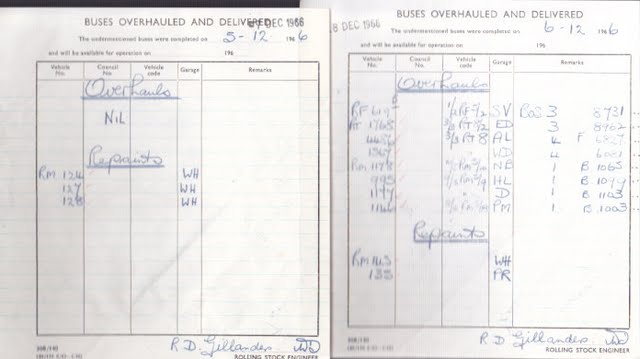 BUSES OVERHAULED AND DELIVERED
7 DEC 1966
The undermentioned buses were completed on 5-12- 196 6
and will be available for operation on 196
Vehicle No. Council No. Vehicle code Garage Remarks
Overhauls
NIL
Repaints
RM 124 WH
127 WH
128 WH
R D. Gillandes
ROLLING STOCK ENGINEER
BUSES OVERHAULED AND DELIVERED
8 DEC 1966
The undermentioned buses were completed on 6-12- 196 6
and will be available for operation on 196
Vehicle No. Council No. Vehicle code Garage Remarks
Overhauls
SV BOS 3 8731
RT 1768 ED 3 8962
AL 4 F
1367 WD 4
RM 1178 NB 1 B 1065
995 HL 1 B
1147 " D 1 B 1103
1146 PM 1 B 1003
Repaints
RM 143 WH
135 PR
R D. Gillandes
ROLLING STOCK ENGINEER